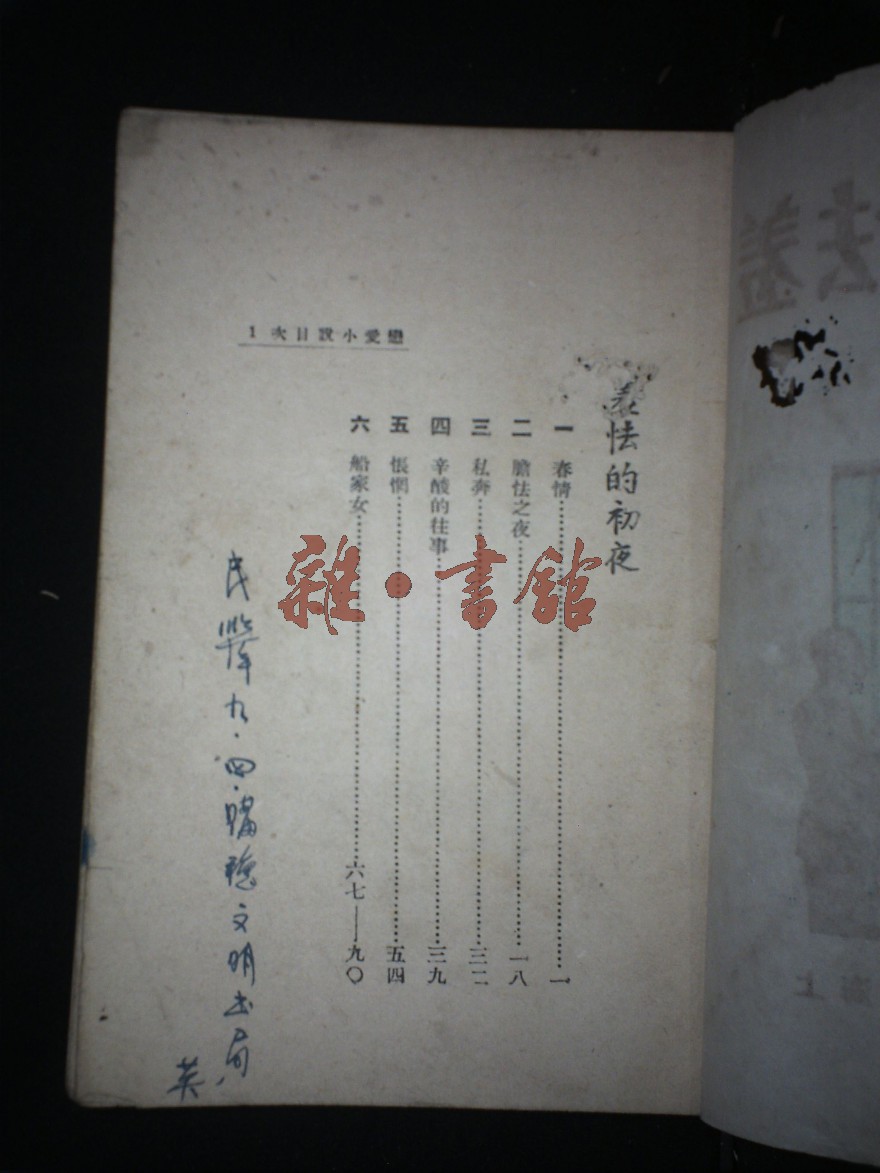 戀愛小說目次 1
羞怯的初夜
一 春情……一
二 膽怯之夜……一八
三 私奔……三二
四 辛酸的往事……三九
五 悵惘……五四
六 船家女……六七——九〇
民 九·四·購 文明书局
英
雜·書館
羞怯
上海